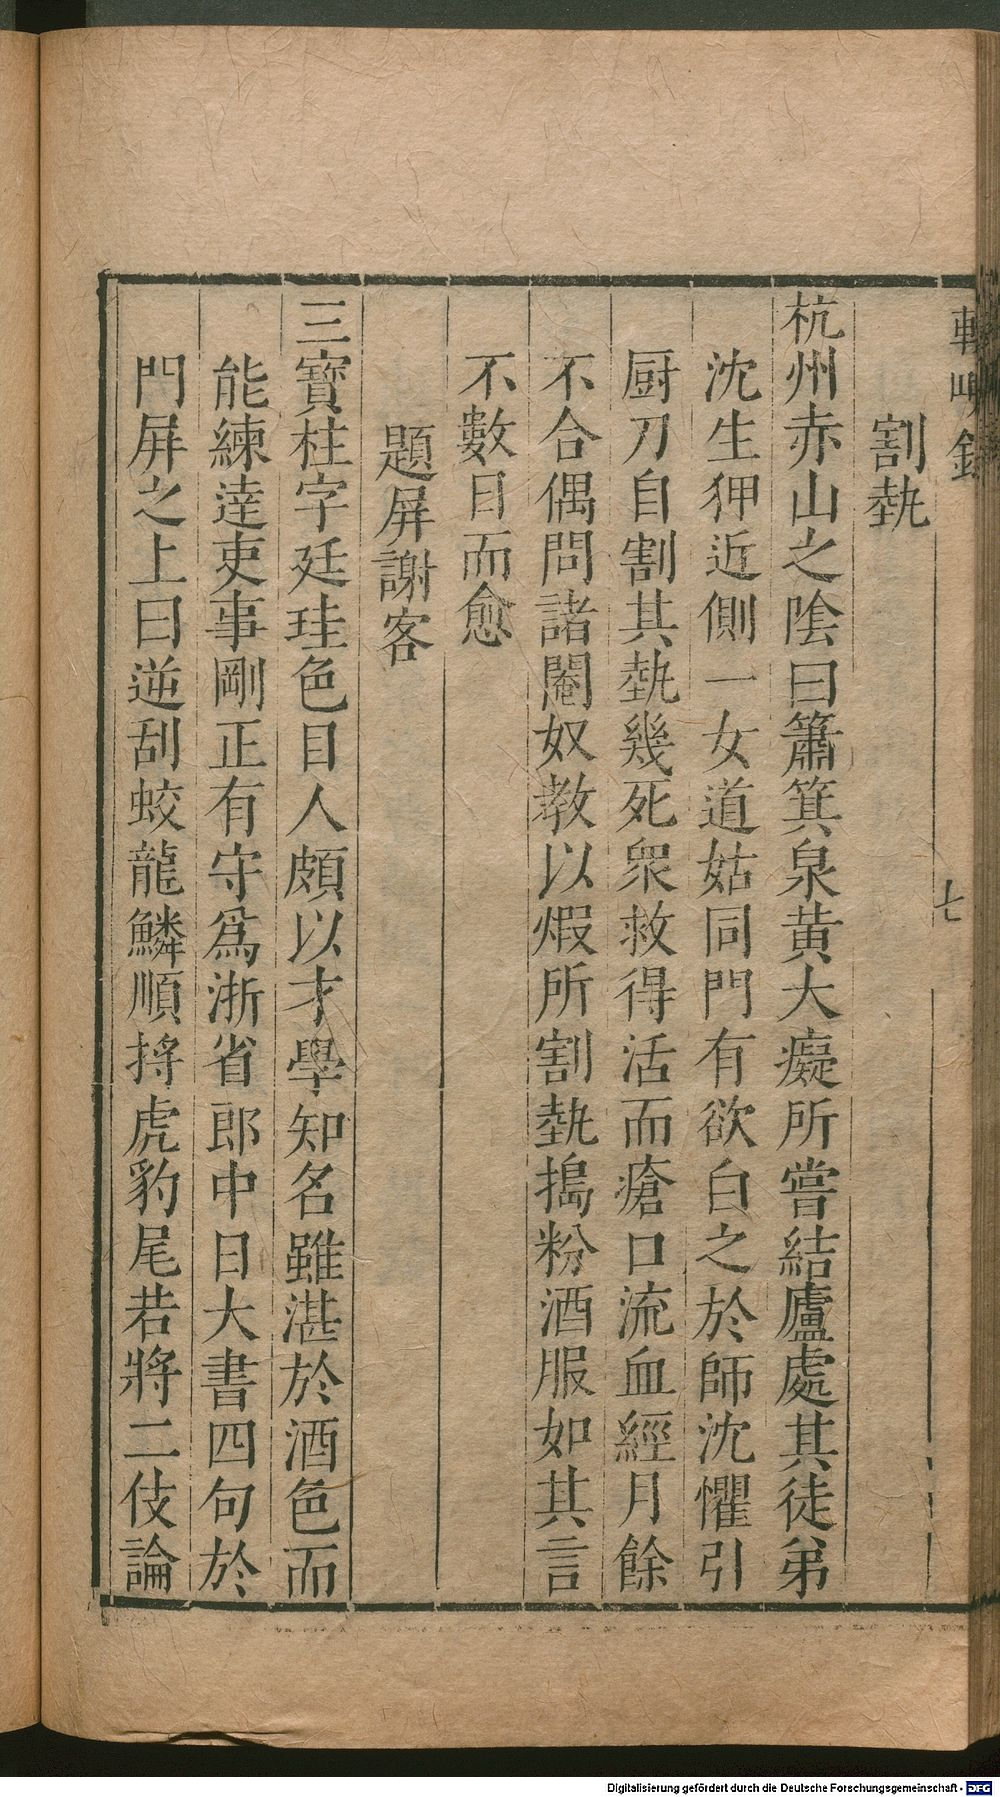 割埶
杭州赤山之陰曰簫箕泉黃大癡所嘗結廬處其徒弟
沈生狎近側一女道姑同門有欲白之於師沈懼引
厨刀自割其埶幾死衆救得活而瘡口流血經月餘
不合偶問諸閹奴教以煆所割埶搗粉酒服如其言
不數日而愈
題屏謝客
三寶柱字廷珪色目人頗以才學知名雖湛於酒色而
能練達吏事剛正有守爲浙省郎中日大書四句於
門屏之上曰逆刮蛟龍鱗順捋虎豹尾若將二伎論
七
Digitalisierung gefördert durch die Deutsche Forschungsgemeinschaft - DFG